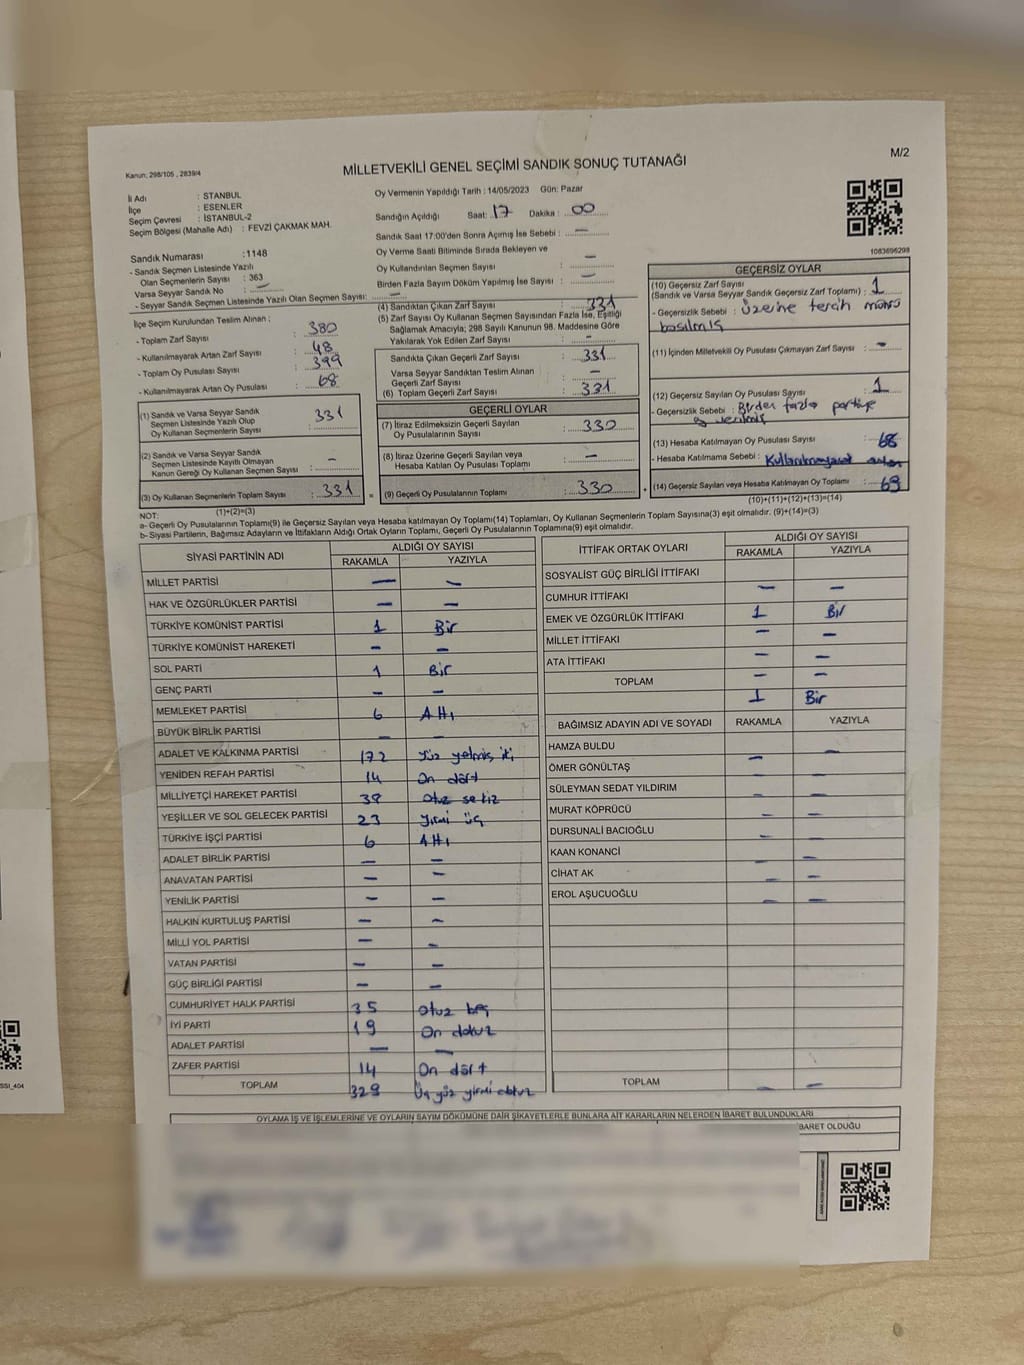 Kanun: 298/105 , 2839/4
MİLLETVEKİLİ GENEL SEÇİMİ SANDIK SONUÇ TUTANAĞI
M/2
İl Adı : İSTANBUL
İlçe : ESENLER
Seçim Çevresi : İSTANBUL-2
Seçim Bölgesi (Mahalle Adı) : FEVZİ ÇAKMAK MAH.
Oy Vermenin Yapıldığı Tarih : 14/05/2023 Gün: Pazar
Sandığın Açıldığı Saat: 17 Dakika : 00
Sandık Saat 17:00'den Sonra Açımış İse Sebebi : –
Oy Verme Saati Bitiminde Sırada Bekleyen ve
Oy Kullandırılan Seçmen Sayısı : –
Birden Fazla Sayım Döküm Yapılmış İse Sayısı : –
1083696298
Sandık Numarası :1148
- Sandık Seçmen Listesinde Yazılı
Olan Seçmenlerin Sayısı : 363
Varsa Seyyar Sandık No : –
- Seyyar Sandık Seçmen Listesinde Yazılı Olan Seçmen Sayısı: –
İlçe Seçim Kurulundan Teslim Alınan ;
- Toplam Zarf Sayısı : 380
- Kullanılmayarak Artan Zarf Sayısı : 48
- Toplam Oy Pusulası Sayısı : 399
- Kullanılmayarak Artan Oy Pusulası : 68
(1) Sandık ve Varsa Seyyar Sandık
Seçmen Listesinde Yazılı Olup
Oy Kullanan Seçmenlerin Sayısı : 331
(2) Sandık ve Varsa Seyyar Sandık
Seçmen Listesinde Kayıtlı Olmayan
Kanun Gereği Oy Kullanan Seçmen Sayısı : –
(3) Oy Kullanan Seçmenlerin Toplam Sayısı : 331
(1)+(2)=(3)
(4) Sandıktan Çıkan Zarf Sayısı : 331
(5) Zarf Sayısı Oy Kullanan Seçmen Sayısından Fazla İse, Eşitliği
Sağlamak Amacıyla; 298 Sayılı Kanunun 98. Maddesine Göre
Yakılarak Yok Edilen Zarf Sayısı : –
Sandıkta Çıkan Geçerli Zarf Sayısı : 331
Varsa Seyyar Sandıktan Teslim Alınan
Geçerli Zarf Sayısı : –
(6) Toplam Geçerli Zarf Sayısı : 331
GEÇERLİ OYLAR
(7) İtiraz Edilmeksizin Geçerli Sayılan
Oy Pusulalarının Sayısı : 330
(8) İtiraz Üzerine Geçerli Sayılan veya
Hesaba Katılan Oy Pusulası Toplamı : –
= (9) Geçerli Oy Pusulalarının Toplamı : 330
GEÇERSİZ OYLAR
(10) Geçersiz Zarf Sayısı
(Sandık ve Varsa Seyyar Sandık Geçersiz Zarf Toplamı) : 1
- Geçersizlik Sebebi : Üzerine tercih mührü
basılmış
(11) İçinden Milletvekili Oy Pusulası Çıkmayan Zarf Sayısı : –
(12) Geçersiz Sayılan Oy Pusulası Sayısı : 1
- Geçersizlik Sebebi : Birden fazla partiye
oy verilmiş
(13) Hesaba Katılmayan Oy Pusulası Sayısı : 68
- Hesaba Katılmama Sebebi : Kullanılmayarak artan
(14) Geçersiz Sayılan veya Hesaba Katılmayan Oy Toplamı : 69
(10)+(11)+(12)+(13)=(14)
NOT:
a- Geçerli Oy Pusulalarının Toplamı(9) ile Geçersiz Sayılan veya Hesaba katılmayan Oy Toplamı(14) Toplamları, Oy Kullanan Seçmenlerin Toplam Sayısına(3) eşit olmalıdır. (9)+(14)=(3)
b- Siyasi Partilerin, Bağımsız Adayların ve İttifakların Aldığı Ortak Oyların Toplamı, Geçerli Oy Pusulalarının Toplamına(9) eşit olmalıdır.
SİYASİ PARTİNİN ADI ALDIĞI OY SAYISI
RAKAMLA YAZIYLA
MİLLET PARTİSİ – –
HAK VE ÖZGÜRLÜKLER PARTİSİ – –
TÜRKİYE KOMÜNİST PARTİSİ 1 Bir
TÜRKİYE KOMÜNİST HAREKETİ – –
SOL PARTİ 1 Bir
GENÇ PARTİ – –
MEMLEKET PARTİSİ 6 Altı
BÜYÜK BİRLİK PARTİSİ – –
ADALET VE KALKINMA PARTİSİ 172 Yüz yetmiş iki
YENİDEN REFAH PARTİSİ 14 On dört
MİLLİYETÇİ HAREKET PARTİSİ 38 Otuz sekiz
YEŞİLLER VE SOL GELECEK PARTİSİ 23 Yirmi üç
TÜRKİYE İŞÇİ PARTİSİ 6 Altı
ADALET BİRLİK PARTİSİ – –
ANAVATAN PARTİSİ – –
YENİLİK PARTİSİ – –
HALKIN KURTULUŞ PARTİSİ – –
MİLLİ YOL PARTİSİ – –
VATAN PARTİSİ – –
GÜÇ BİRLİĞİ PARTİSİ – –
CUMHURİYET HALK PARTİSİ 35 Otuz beş
İYİ PARTİ 19 On dokuz
ADALET PARTİSİ – –
ZAFER PARTİSİ 14 On dört
TOPLAM 329 Üç yüz yirmi dokuz
İTTİFAK ORTAK OYLARI ALDIĞI OY SAYISI
RAKAMLA YAZIYLA
SOSYALİST GÜÇ BİRLİĞİ İTTİFAKI – –
CUMHUR İTTİFAKI 1 Bir
EMEK VE ÖZGÜRLÜK İTTİFAKI – –
MİLLET İTTİFAKI – –
ATA İTTİFAKI – –
TOPLAM 1 Bir
BAĞIMSIZ ADAYIN ADI VE SOYADI RAKAMLA YAZIYLA
HAMZA BULDU – –
ÖMER GÖNÜLTAŞ – –
SÜLEYMAN SEDAT YILDIRIM – –
MURAT KÖPRÜCÜ – –
DURSUNALİ BACIOĞLU – –
KAAN KONANCİ – –
CİHAT AK – –
EROL AŞUCUOĞLU
TOPLAM – –
OYLAMA İŞ VE İŞLEMLERİNE VE OYLARIN SAYIM DÖKÜMÜNE DAİR ŞİKAYETLERLE BUNLARA AİT KARARLARIN NELERDEN İBARET BULUNDUKLARI
BARET OLDUĞU
SSI_404